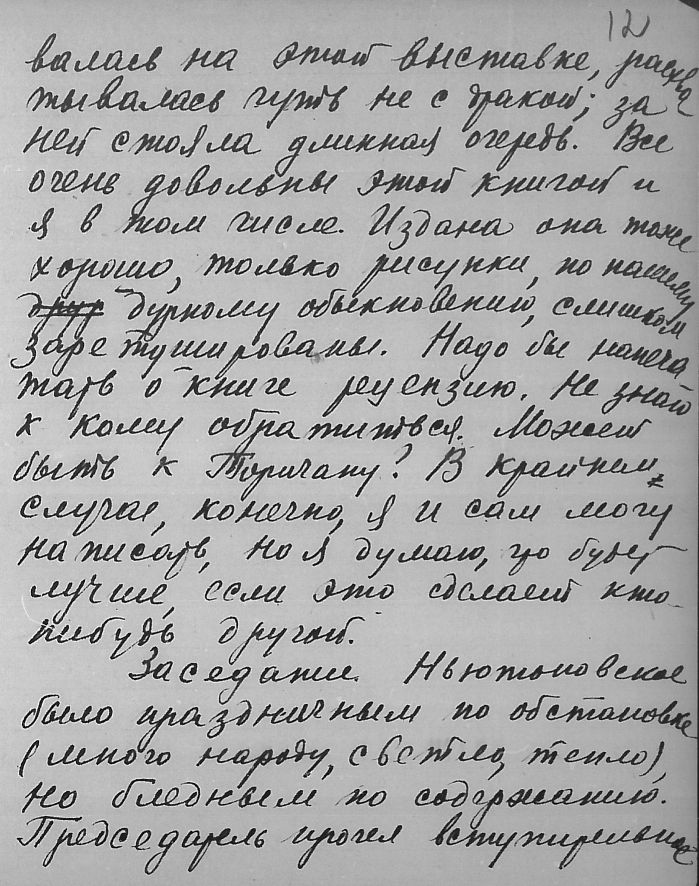 12
валась на этой выставке, расхва
тывалась чуть не с дракой; за
ней стояла длинная очередь. Все
очень довольны этой книгой и
я в том числе. Издана она тоже
хорошо, только рисунки, по нашему
друг дурному обыкновению, слишком
заретушированы. Надо бы напеча
тать о книге рецензию. Не знаю
к кому обратиться. Может
быть к Торичану? В крайнем
случае, конечно, я и сам могу
написать, но я думаю, что будет
лучше, если это сделает кто-
нибудь другой.
Заседание Ньютоновское
было праздничным по обстановке
(много народу, светло, тепло),
но бледным по содержанию.
Председатель прочел вступительное